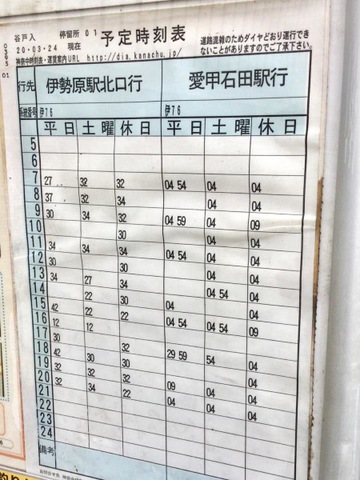 谷戸入 停留所 01 予定時刻表
20-03-24 現在
神奈中時刻表・運賃案内URL http://dia.kanachu.jp/
道路混雑のためダイヤどおり運行できないことがありますのでご了承下さい。
行先 伊勢原駅北口行 愛甲石田駅行
系統番号 伊76 伊76
平日 土曜 休日 平日 土曜 休日
5
6
7 27 32 32 04 54 04 04
8 37 32 34 04 04
9 30 34 30 04 59 04 09
10 30 04
11 34 34 34 04 54 04 04
12 30 30 04
13 34 27 04 54 04
14 22 22 04 54 04
15 42 22 30 04 04
16 12 12 22 04 54 04 54 09
17 30
18 42 30 30 29 59 54 04
19 32 30 32 04
20 32 34 22 09 04 04
21 04 04 04
22
23
24
備考